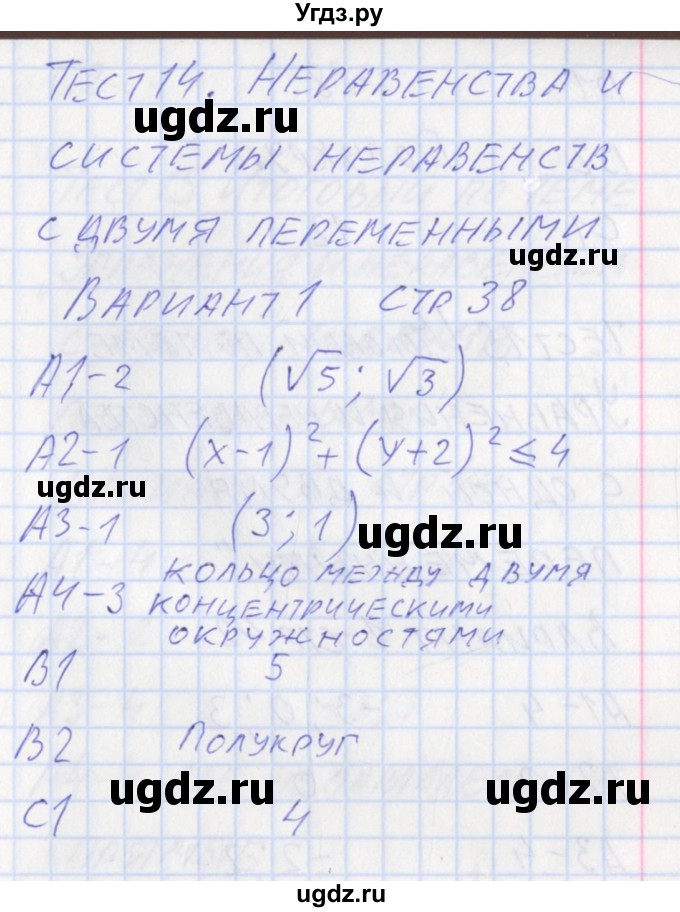 Угдз.ру
ТЕСТ 14. НЕРАВЕНСТВА И
СИСТЕМЫ НЕРАВЕНСТВ
С ДВУМЯ ПЕРЕМЕННЫМИ
ВАРИАНТ 1 СТР 38
А1-2 (√5; √3)
А2-1 (x-1)²+(y+2)²≤4
А3-1 (3; 1)
А4-3 КОЛЬЦО МЕЖДУ ДВУМЯ
КОНЦЕНТРИЧЕСКИМИ
ОКРУЖНОСТЯМИ
В1 5
В2 ПОЛУКРУГ
С1 4
ugdz.ru
ugdz.ru
ugdz.ru
ugdz.ru
ugdz.ru
ugdz.ru
ugdz.ru
ugdz.ru